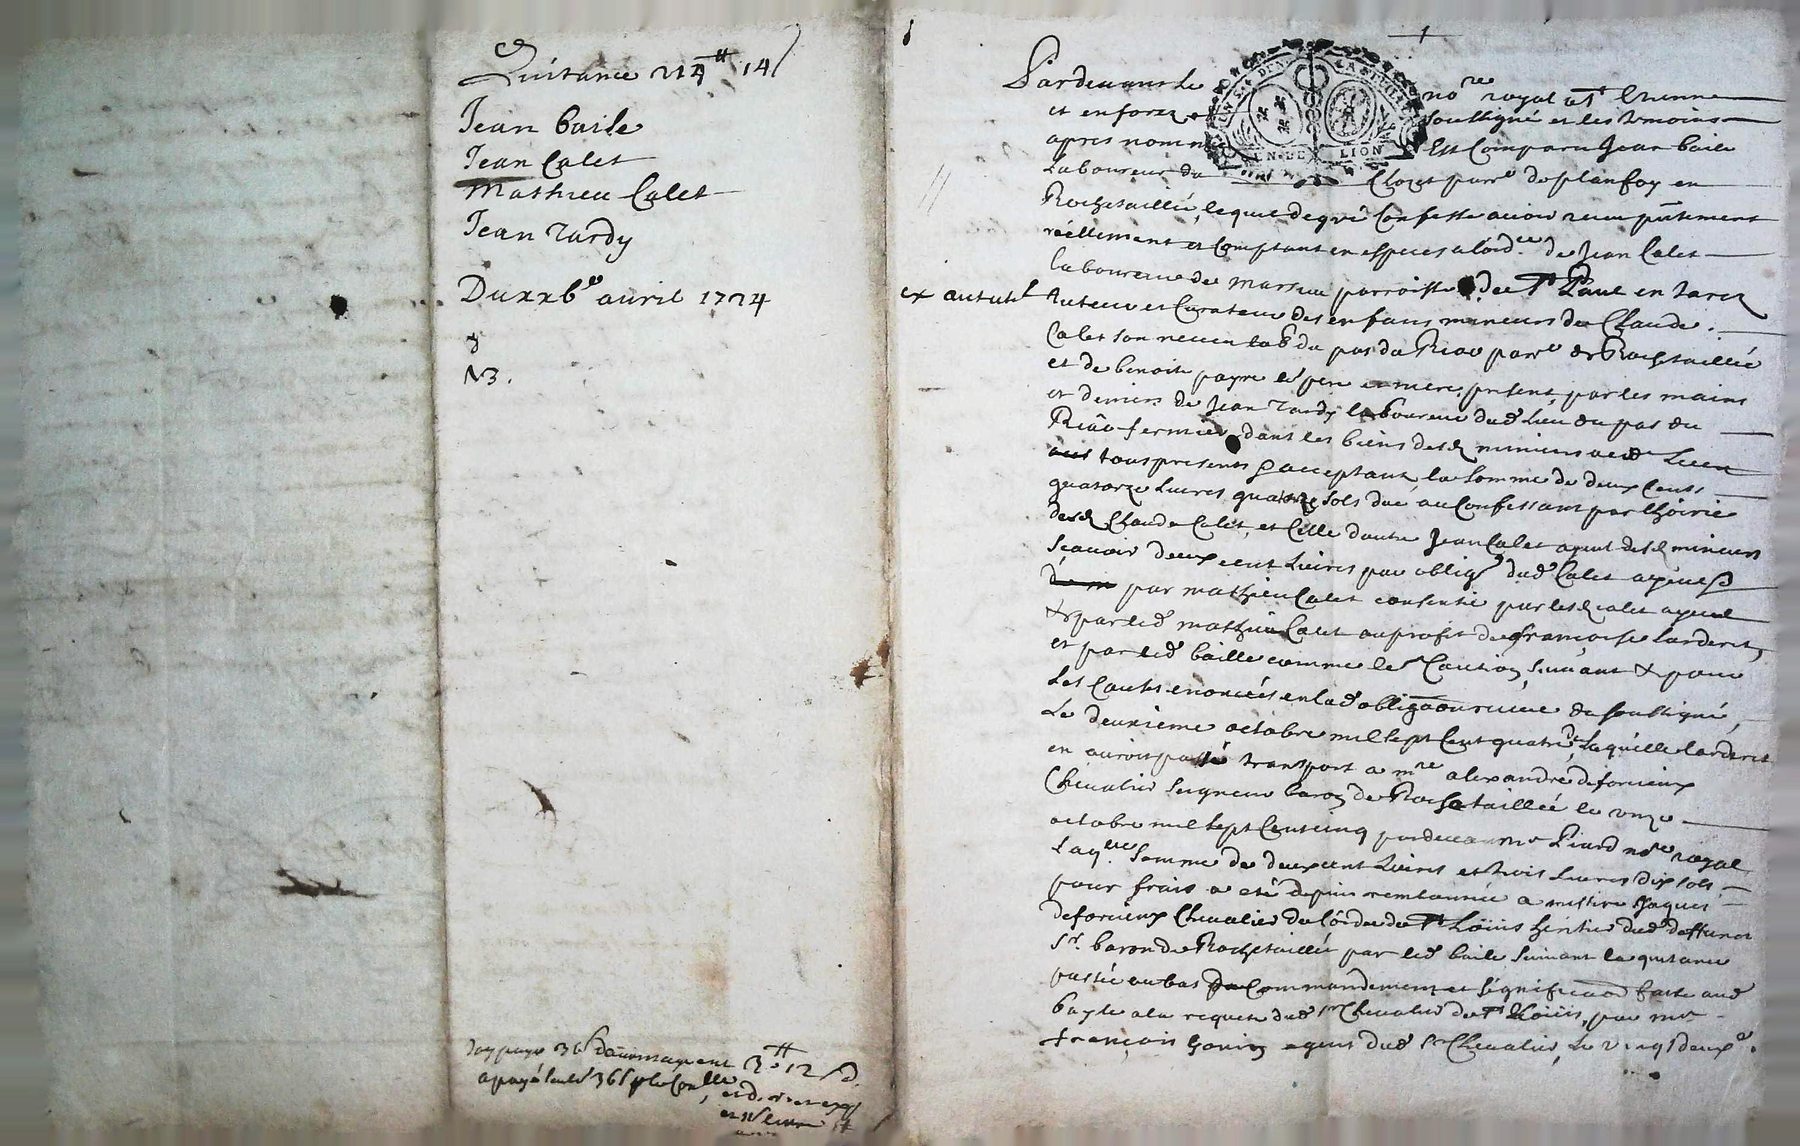 Quitance 214# 14s
Jean baile
Jean Calet
Mathieu Calet
Jean Tardy
Du xxbe avril 1724
&
N3.
3# 12 s d.
Pardevant Le nore royal a St Etienne
et en forez soussigné et les temoins
apres nommés Est Comparu Jean baile
Laboureur du Chozet parre de planfoy en
Rochetaillée, lequel de gré Confesse avoir receu pñtement
réellement et Comptant en especes a lord.ce de Jean Calet
laboureur de parroisse de St Paul en Jarez
ex autute Tuteur et Curateur des enfans mineurs de Claude
Calet son neveu lab du pas du Riau parre de Rochetaillée
et de benoite payre les pere et mere, present par les mains
et deniers de Jean Tardy laboureur dud. Lieu du pas du
Riâu fermier dans les biens desd mineurs aud Lieu
tous presents & acceptant, la Somme de deux Cents
quatorze Livres quatorze sols due au Confessant par lhoirie
dud Claude Calet, et Celle dautre Jean Calet ayeul desd mineurs
Sçavoir deux cent Livres par oblig dud Calet ayeul &
par mathieu Calet consentie par lesd calet ayeul
& par led mathieu Calet au profit de françoise Larderet,
et par led baille comme leur Caution, suivant & pour
Les Causes enoncées en lad obligãon receue du soussigné,
Le deuxieme octobre mil sept Cent quatre, Laquelle larderet
en auroit passé transport a mre alexandre deforcieux
Chevalier Seigneur baron de Rochetaillée le onze
octobre mil sept Cent cinq pardevant me Piard nore royal
laq.elle Somme de deux cent Livres et trois Livres dix sols
pour frais a eté depuis remboursée a messire Jaques
deforcieux Chevalier de Lordre de St Loüis heritier dud deffunct
Sr. baron de Rochetaillée par led baile suivant la quitance
passée au bas du Commandement et signification faite aud
bayle a la requete dud sr Chevalier de St Loüis, par me
françois agent dud Sr Chevalier, Le vingt deuxe.